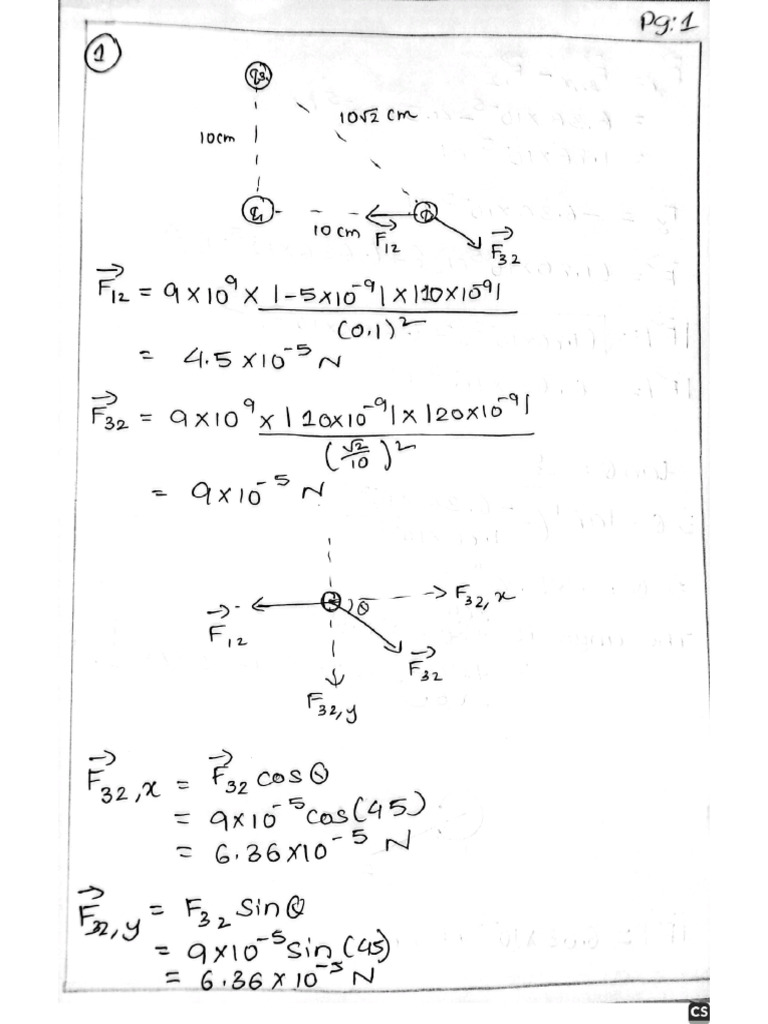 Pg:1
1
q3
10√2 cm
10cm
q1
10 cm
F⃗12
F⃗32
F⃗12 = 9×10⁹ × |-5×10⁻⁹|×|10×10⁻⁹| / (0.1)²
= 4.5×10⁻⁵ N
F⃗32 = 9×10⁹ × |10×10⁻⁹|×|20×10⁻⁹| / (√2/10)²
= 9×10⁻⁵ N
θ
F32,x
F⃗12
F⃗32
F32,y
F⃗32,x = F⃗32 cosθ
= 9×10⁻⁵ cos(45)
= 6.36×10⁻⁵ N
F⃗32,y = F32 sinθ
= 9×10⁻⁵ sin(45)
= 6.36×10⁻⁵ N
CS